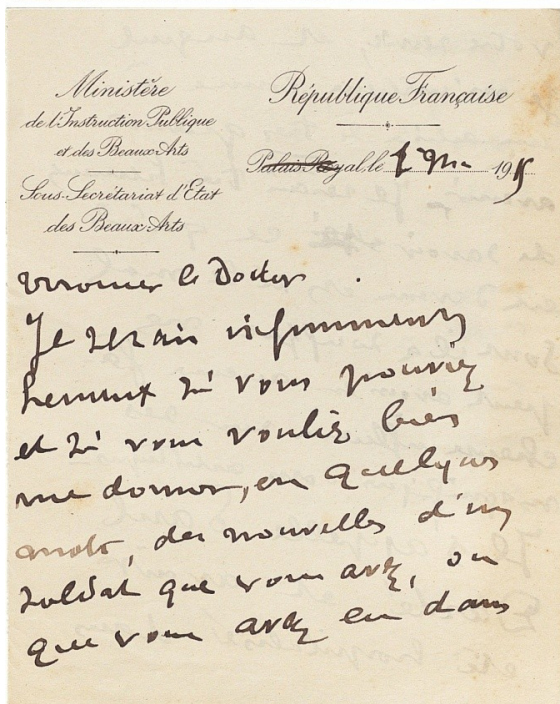 Ministère
de l'Instruction Publique
et des Beaux-Arts
Sous-Secrétariat d'Etat
des Beaux-Arts
République Française
Palais-Royal, le 191
Monsieur le Docteur
Je serais infiniment
heureux si vous pouviez
et si vous vouliez bien
me donner, en quelques
mots, des nouvelles d'un
soldat que vous avez, ou
que vous avez eu dans